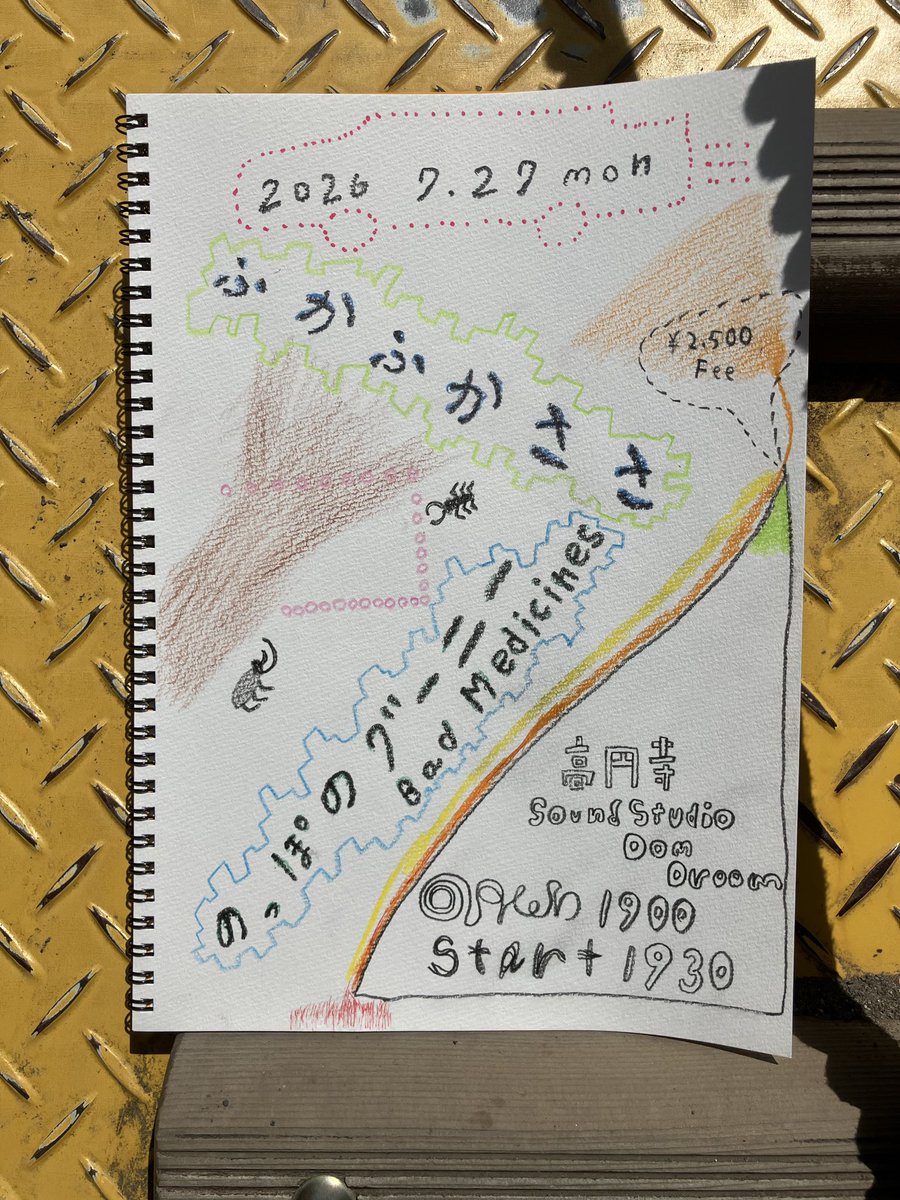 2026 7.27 mon
ふかふかささ
¥2.500
Fee
のっぽのグーニー
Bad Medicines
高円寺
Sound Studio
Dom
Droom
Open 1900
Start 1930